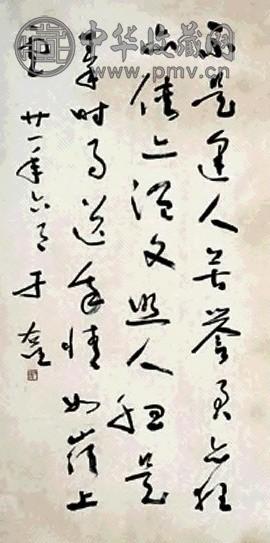 中华收藏网
www.pmv.cn
不是逢人苦譽君亦狂
亦俠亦溫文照人胆是
秦時月送我情如嶺上
雲 廿一年六月 于右任